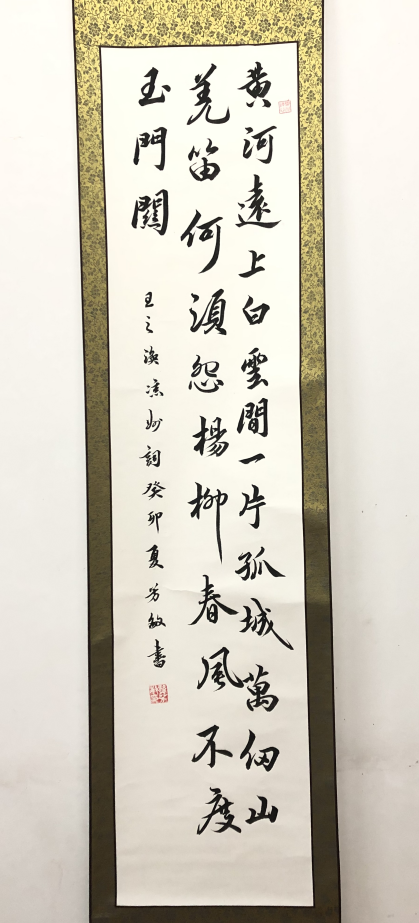 黄河遠上白雲間一片孤城萬仞山
羌笛何須怨楊柳春風不度
玉門關
王之渙涼州詞癸卯夏芳敏書